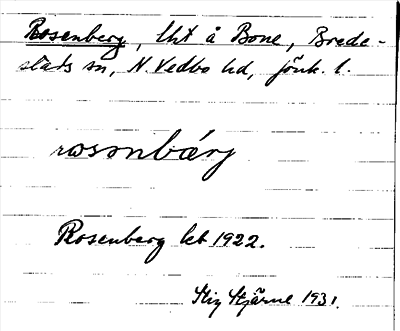 Rosenberg, lht å Bone, Brede-
stads sn, N. Vedbo hd, jönk. l.
rosonbærj
Rosenberg kb 1922.
Stig Stjärne 1931.